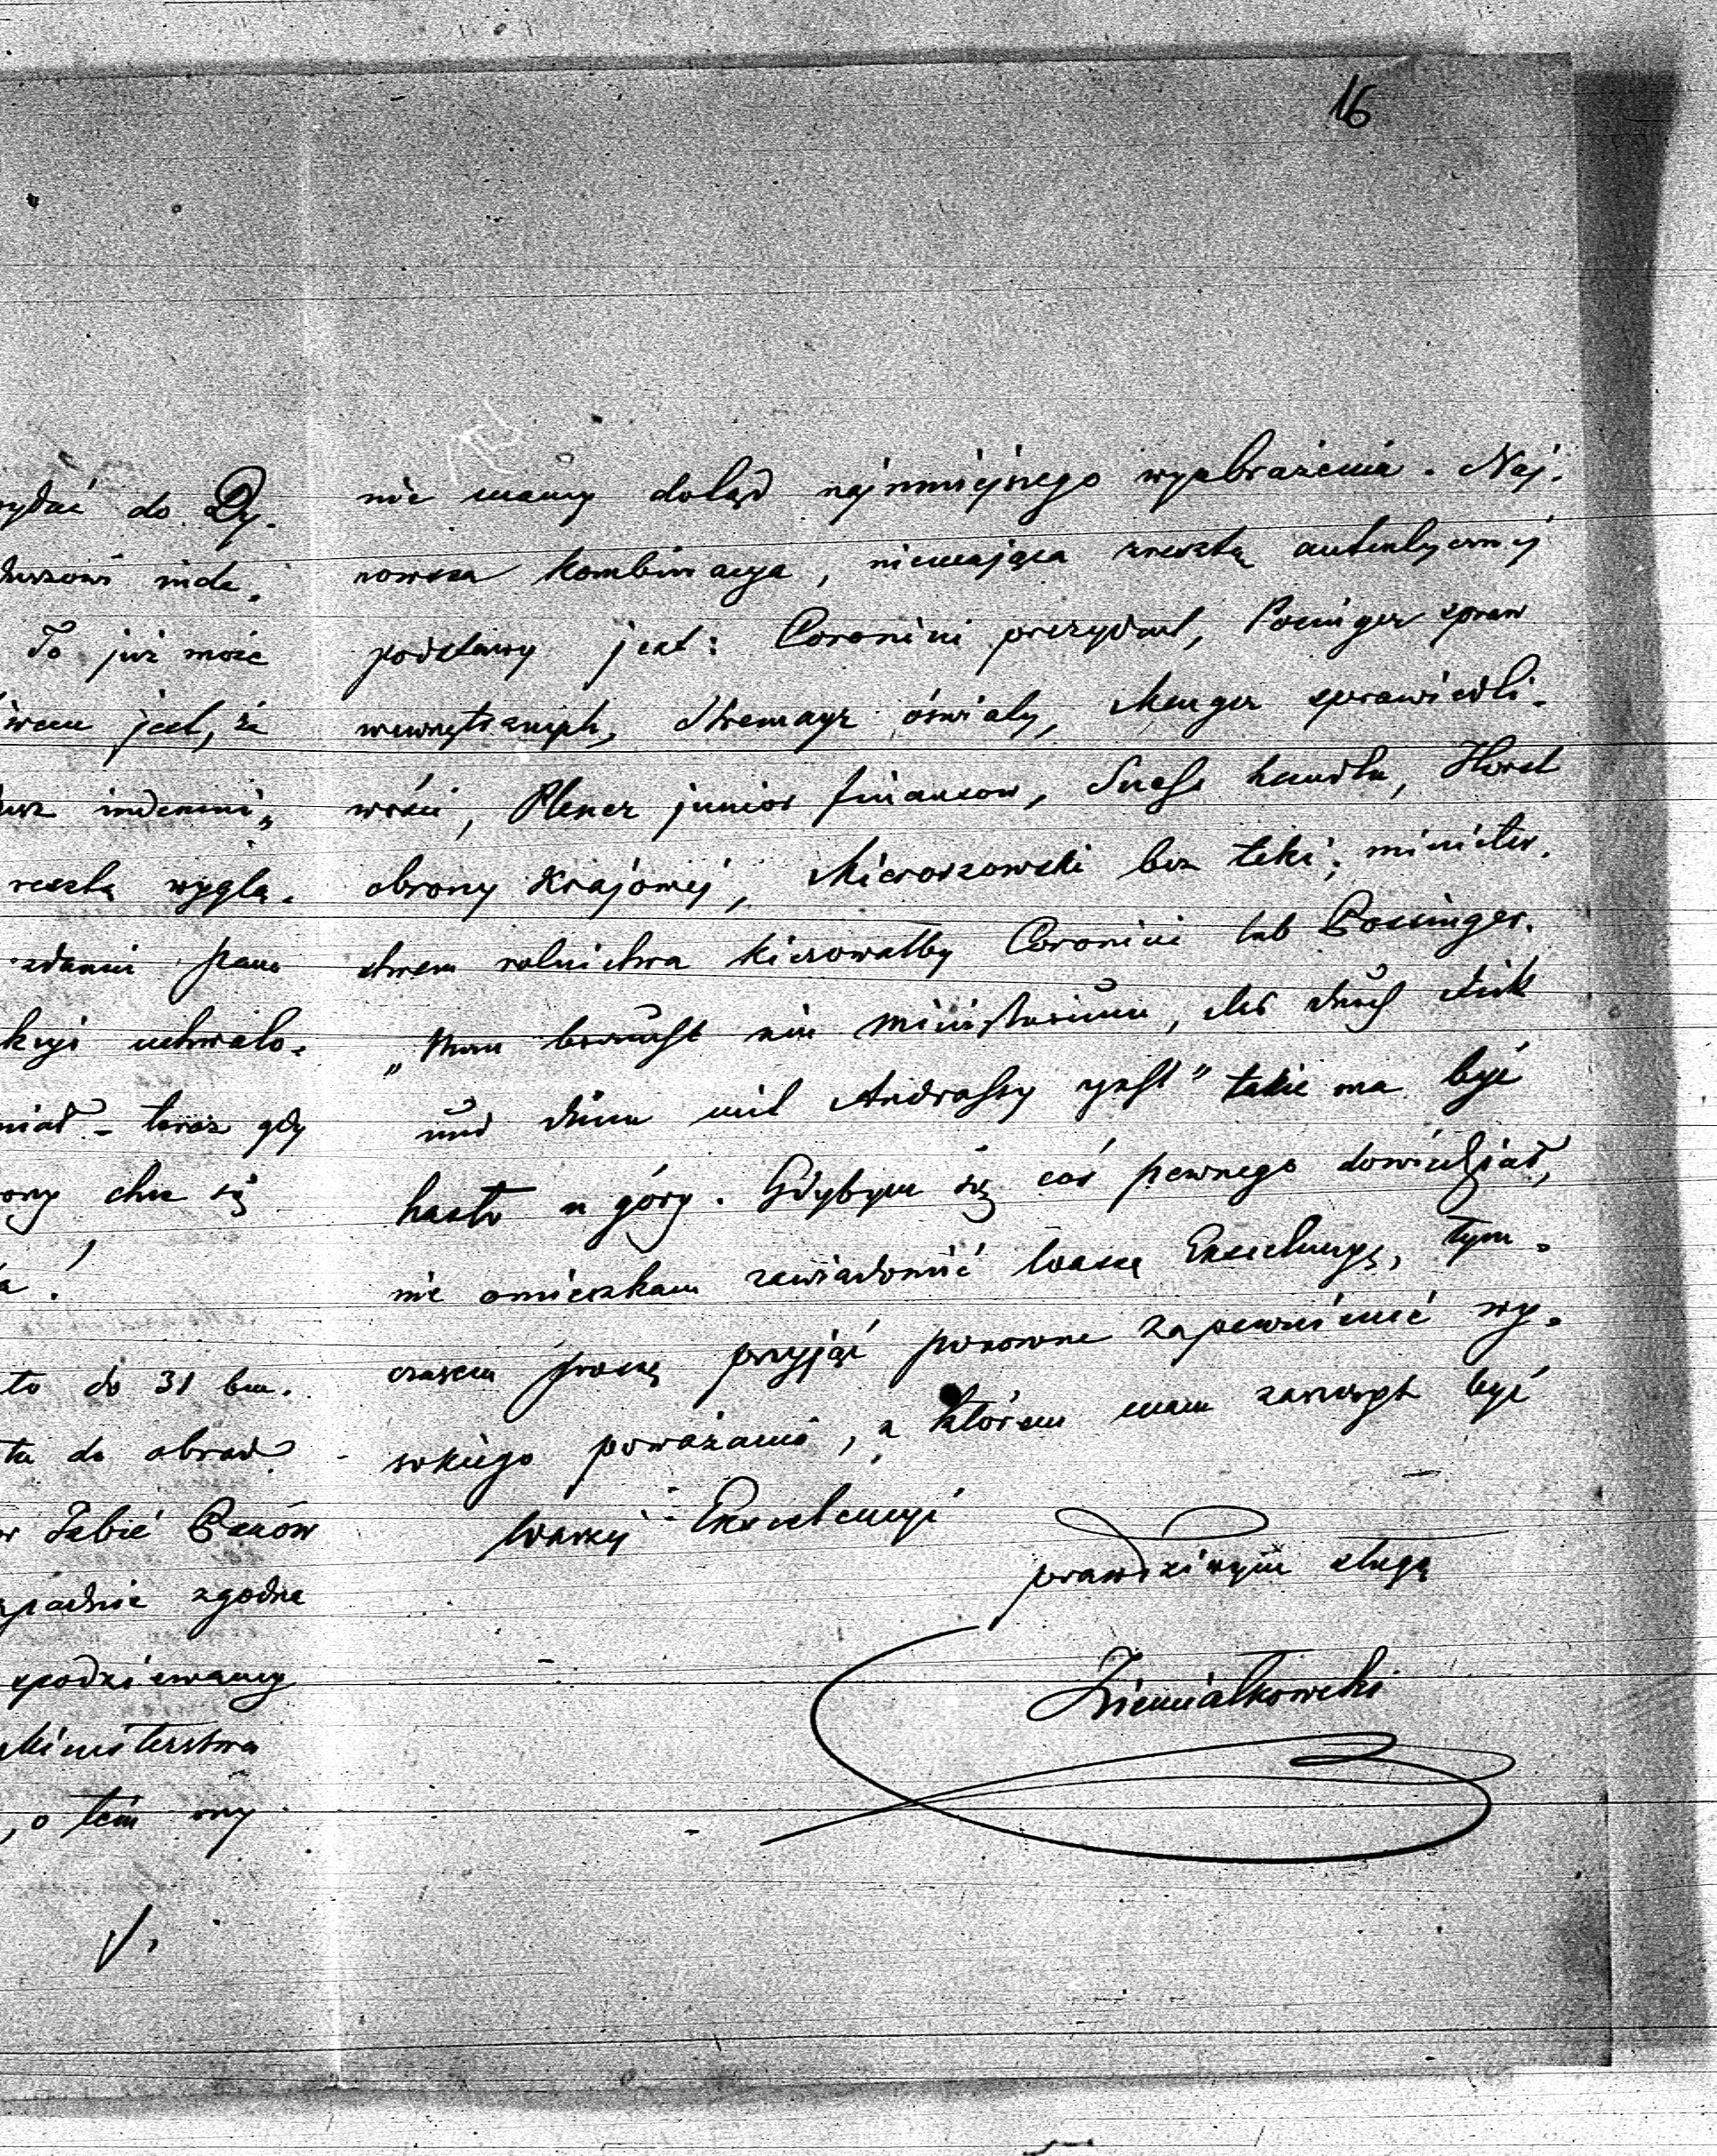 16
ydać do Dy-
duszowi inde.
To już może
jest, że
indemni„
resztą wyglą.
zdaniu pana
uchwalo.
miał – teraz gdy
ony chce się
to do 31 bm.
tu do obrad
Sobie Panów
zgodne
spodziewamy
Ministerstwa
, o tém my
nie mamy dotąd najmniejszego wyobrażenia. Naj.
nowsza kombinacya, niemająca zresztą autentycznej
podstawy jest: Coronini prezydent, Possinger spraw
wewnętrznych, Stremayr oświaty, Menger sprawiedli.
wości, Plener junior finansow, Suess handlu, Horst
obrony krajowej, Mieroszowski bez teki; minister.
stwem rolnictwa kierowałby Coronini lub Possinger.
„Man braucht ein Ministerium, das durch dick
und dünn mit Andrassy geht” takie ma być
hasło u góry. Gdybym się coś pewnego dowiedział,
nie omieszkam zawiadomić Waszę Excelencyę, tym.
czasem proszę przyjąć ponowne zapewnienie wy.
sokiego poważania, z którem mam zaszczyt być
Waszej Excelencyi
prawdziwym sługą
Ziemiałkowski